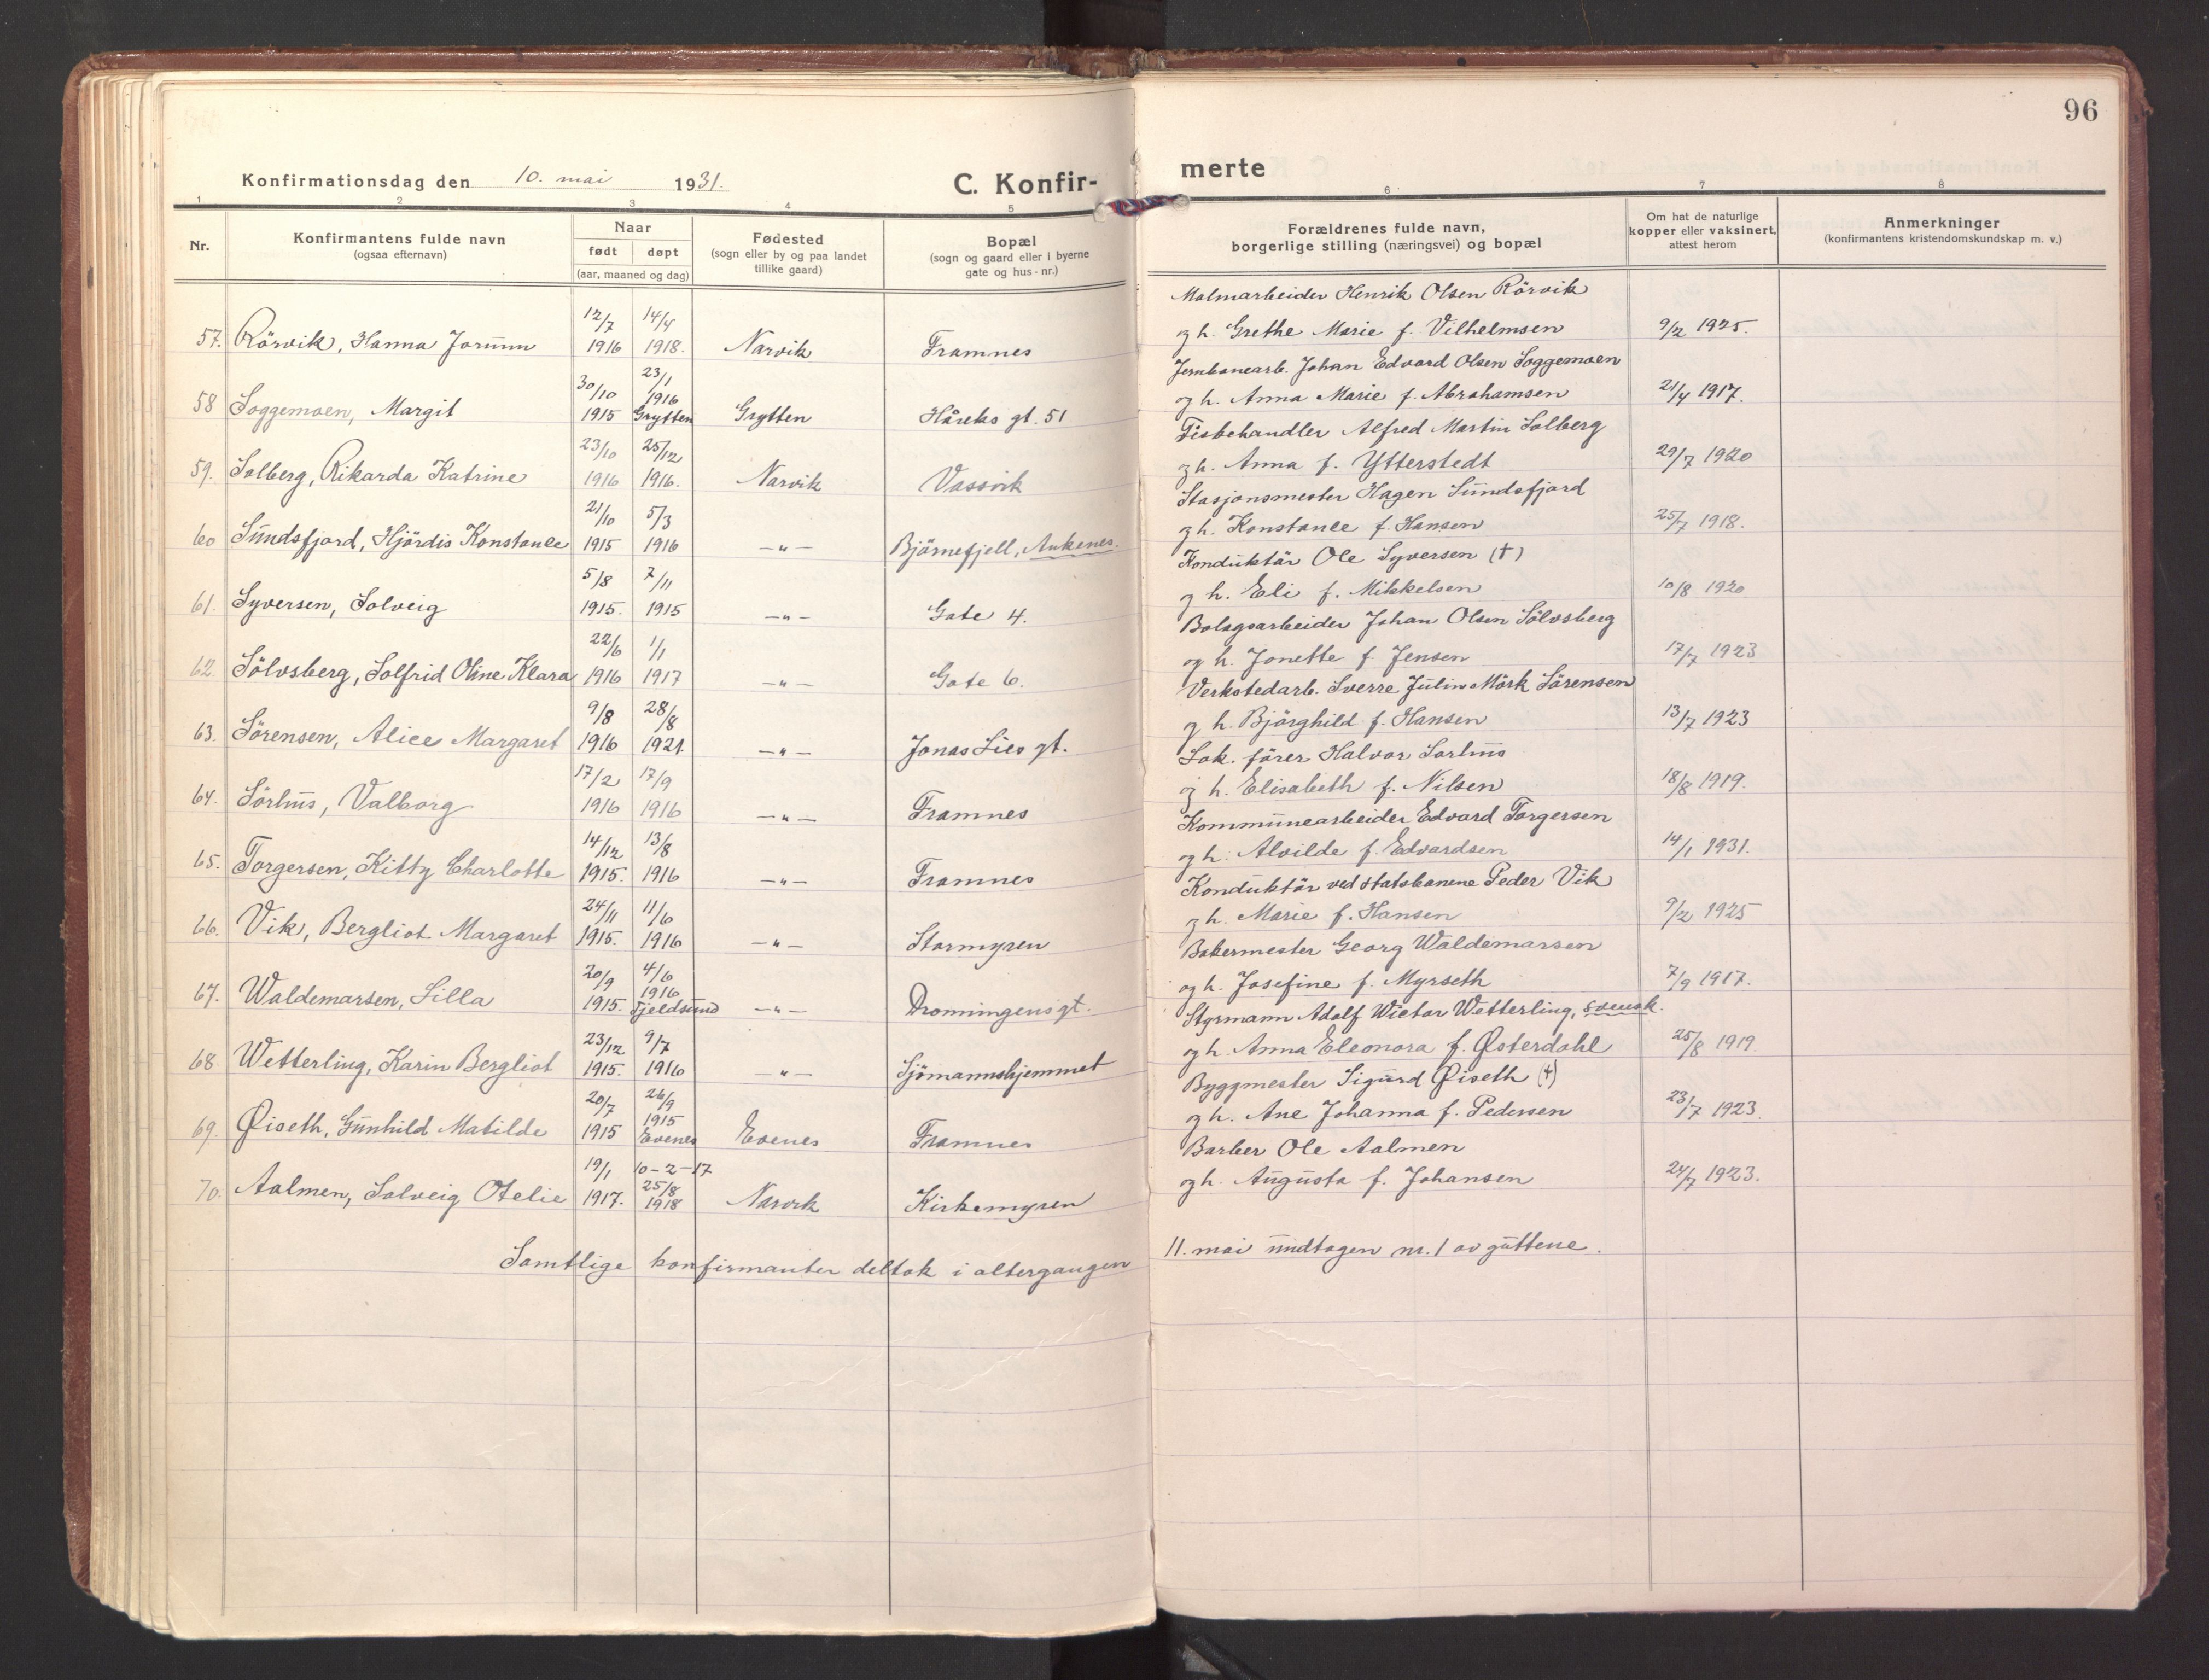 96
Konfirmationsdag den 10. mai 1931.
C. Konfir-
merte
1 2 3 4 5 6 7 8
Nr.
Konfirmantens fulde navn
(ogsaa efternavn)
Naar
født døpt
(aar, maaned og dag)
Fødested
(sogn eller by og paa landet
tillike gaard)
Bopæl
(sogn og gaard eller i byerne
gate og hus-nr.)
Forældrenes fulde navn,
borgerlige stilling (næringsvei) og bopæl
Om hat de naturlige
kopper eller vaksinert,
attest herom
Anmerkninger
(konfirmantens kristendomskundskap m. v.)
12/7 14/4 Malmarbeider Henrik Olsen Rörvik
57. Rörvik, Hanna Jorunn 1916 1918. Narvik Framnes og h. Grethe Marie f. Vilhelmsen 9/2 1925.
30/10 23/1 1916 Jernbanearb. Johan Edvard Olsen Soggemoen
58 Soggemoen, Margit 1915 Grytten Grytten Håreks gt. 51 og h. Anna Marie f. Abrahamsen 21/4 1917.
23/10 25/12 Fisbehandler Alfred Martin Solberg
59. Solberg, Rikarda Katrine 1916 1916. Narvik Vassvik og h. Anna f. Ytterstedt 29/7 1920
21/10 5/3 Stasjonsmester Hagen Sundsfjord
60 Sundsfjord, Hjördis Konstanse 1915 1916 -"- Björnefjell, Ankenes. og h. Konstanse f. Hansen 25/7 1918.
5/8 7/11 Konduktör Ole Syversen (†)
61. Syversen, Solveig 1915. 1915 -"- Gate 4. og h. Eli f. Mikkelsen 10/8 1920
22/6 1/1 Bolagsarbeider Johan Olsen Sölvsberg
62. Sölvsberg, Solfrid Oline Klara 1916 1917 -"- Gate 6. og h. Jonette f. Jensen 17/7 1923
9/8 28/8 Verkstedarb. Sverre Julius Mörk Sörensen
63. Sörensen, Alice Margaret 1916 1921. -"- Jonas Lies gt. og h. Björghild f. Hansen 13/7 1923
17/2 17/9 Lok. förer Halvor Sorhus
64. Sörhus, Valborg 1916 1916 -"- Framnes og h. Elisabeth f. Nilsen 18/8 1919.
14/12 13/8 Kommunearbeider Edvard Torgersen
65. Torgersen, Kitty Charlotte 1915. 1916 -"- Framnes og h. Alvilde f. Edvardsen 14/1 1931.
24/11 11/6 Konduktör ved statsbanene Peder Vik
66. Vik, Bergliot Margaret 1915. 1916 -"- Stormyren og h. Marie f. Hansen 9/2 1925
20/9 4/6 1916 Bakermester Georg Waldemarsen
67. Waldemarsen, Silla 1915. Fjeldsund -"- Dronningensgt. og h. Josefine f. Myrseth 7/9 1917.
23/12 9/7 Styrmann Adolf Wictor Wetterling, svensk.
68 Wetterling, Karin Bergliot 1915. 1916 -"- Sjömannshjemmet og h. Anna Eleonora f. Østerdahl 25/8 1919.
20/7 26/9 1915 Byggmester Sigurd Øiseth (†)
69. Øiseth, Gunhild Matilde 1915 Evenes Evenes Framnes og h. Ane Johanna f. Pedersen 23/7 1923.
19/1 10-2-17 25/8 Barber Ole Aalmen
70. Aalmen, Solveig Otelie 1917. 1918 Narvik Kirkemyren og h. Augusta f. Johansen 24/7 1923.
Samtlige konfirmanter deltok i altergangen 11. mai undtagen nr. 1 av guttene.